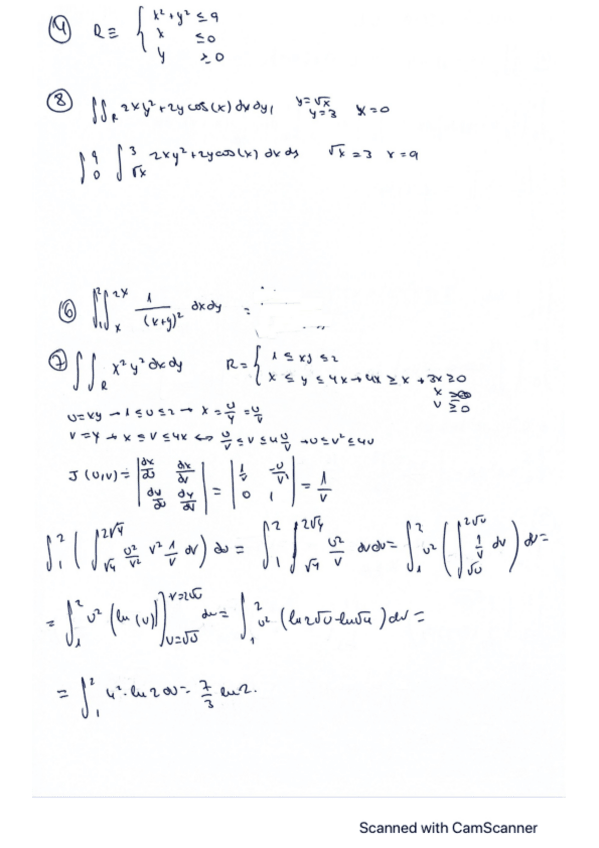 ④ R ≡ { x² + y² ≤ 9
x ≤ 0
y ≥ 0
⑧ ∬_R 2xy² + 2y cos(x) dx dy, y=√x y=3 x=0
∫_0^9 ∫_√x^3 2xy² + 2y cos(x) dx dy √x = 3 x = 9
⑥ ∫_1^2 ∫_x^2x 1/(x+y)² dx dy =
⑦ ∬_R x² y² dx dy R = { 1 ≤ xy ≤ 2
x ≤ y ≤ 4x → 4x ≥ x → 3x ≥ 0
x ≥ 0
v ≥ 0
u = xy → 1 ≤ u ≤ 2 → x = u/y = u/v
v = y → x ≤ v ≤ 4x ↔ u/v ≤ v ≤ 4u/v → u ≤ v² ≤ 4u
J(u,v) = |dx/du dx/dv; dy/du dy/dv| = |1/v -u/v²; 0 1| = 1/v
∫_1^2 (∫_√u^2√u u²/v² v² 1/v dv) du = ∫_1^2 ∫_√u^2√u u²/v dv du = ∫_1^2 u² (∫_√u^2√u 1/v dv) du =
= ∫_1^2 u² (ln(v))]_v=√u^v=2√u du = ∫_1^2 u² (ln 2√u - ln √u) du =
= ∫_1^2 u² · ln 2 du = 7/3 ln 2.
Scanned with CamScanner